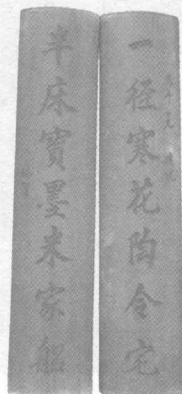 一径寒花陶令宅
半床宝墨米家船